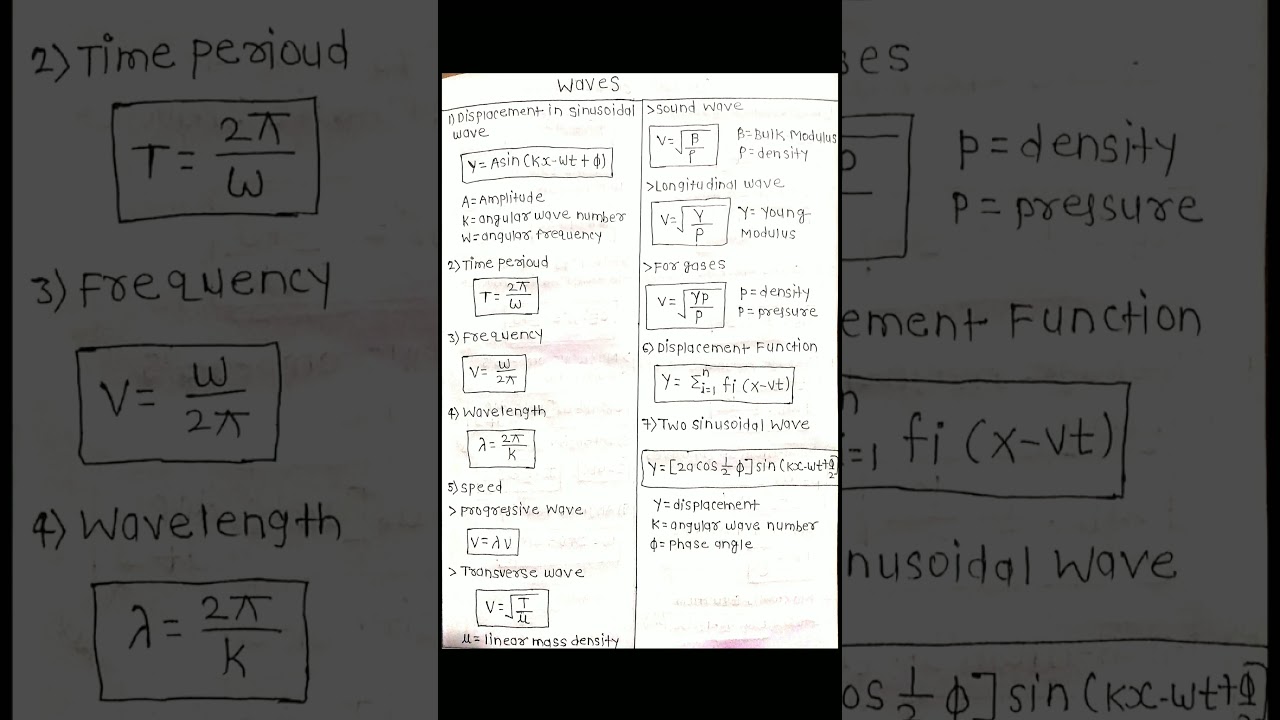 Waves
1) Displacement in sinusoidal
wave
Y = Asin (Kx-wt + ϕ)
A = Amplitude
K = angular wave number
W = angular frequency
2) Time perioud
T = 2π/ω
3) Frequency
V = ω/2π
4) Wavelength
λ = 2π/K
5) speed
> progressive wave
V = λν
> Transverse wave
V = √T/μ
μ = linear mass density
> sound wave
V = √B/ρ
B = Bulk Modulus
ρ = density
> Longitudinal wave
V = √Y/ρ
Y = Young
Modulus
> For gases
V = √γp/ρ
ρ = density
P = pressure
6) Displacement Function
Y = Σⁿᵢ₌₁ fi (x-vt)
7) Two sinusoidal wave
Y = [2a cos 1/2 ϕ] sin (Kx-wt+ϕ/2)
Y = displacement
K = angular wave number
ϕ = phase angle
2) Time perioud
T = 2π/ω
3) Frequency
V = ω/2π
4) Wavelength
λ = 2π/K
ses
ρ = density
P = pressure
ement Function
n
i=1 fi (x-vt)
nusoidal wave
os 1/2 ϕ] sin (Kx-wt+ϕ